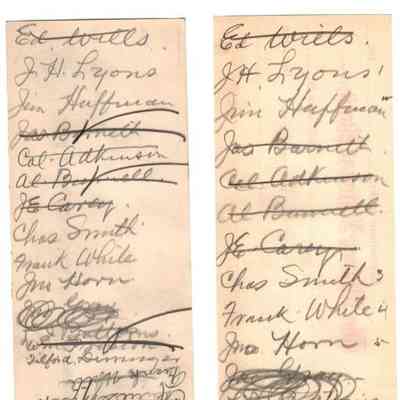 Ed. Wills.
J. H. Lyons
Jim Huffman
Jas Barnett
Cal Adkinson
Al Burnell.
J E Carey.
Chas Smith.
Frank White
Jno Horn
Wm
Telford
Frank White
Ed Wills.
J. H. Lyons 1
Jim Huffman
Jas Barnett.
Cal Adkinson
Al Burnell.
J E Carey.
Chas Smith 3
Frank White 4
Jno Horn 5